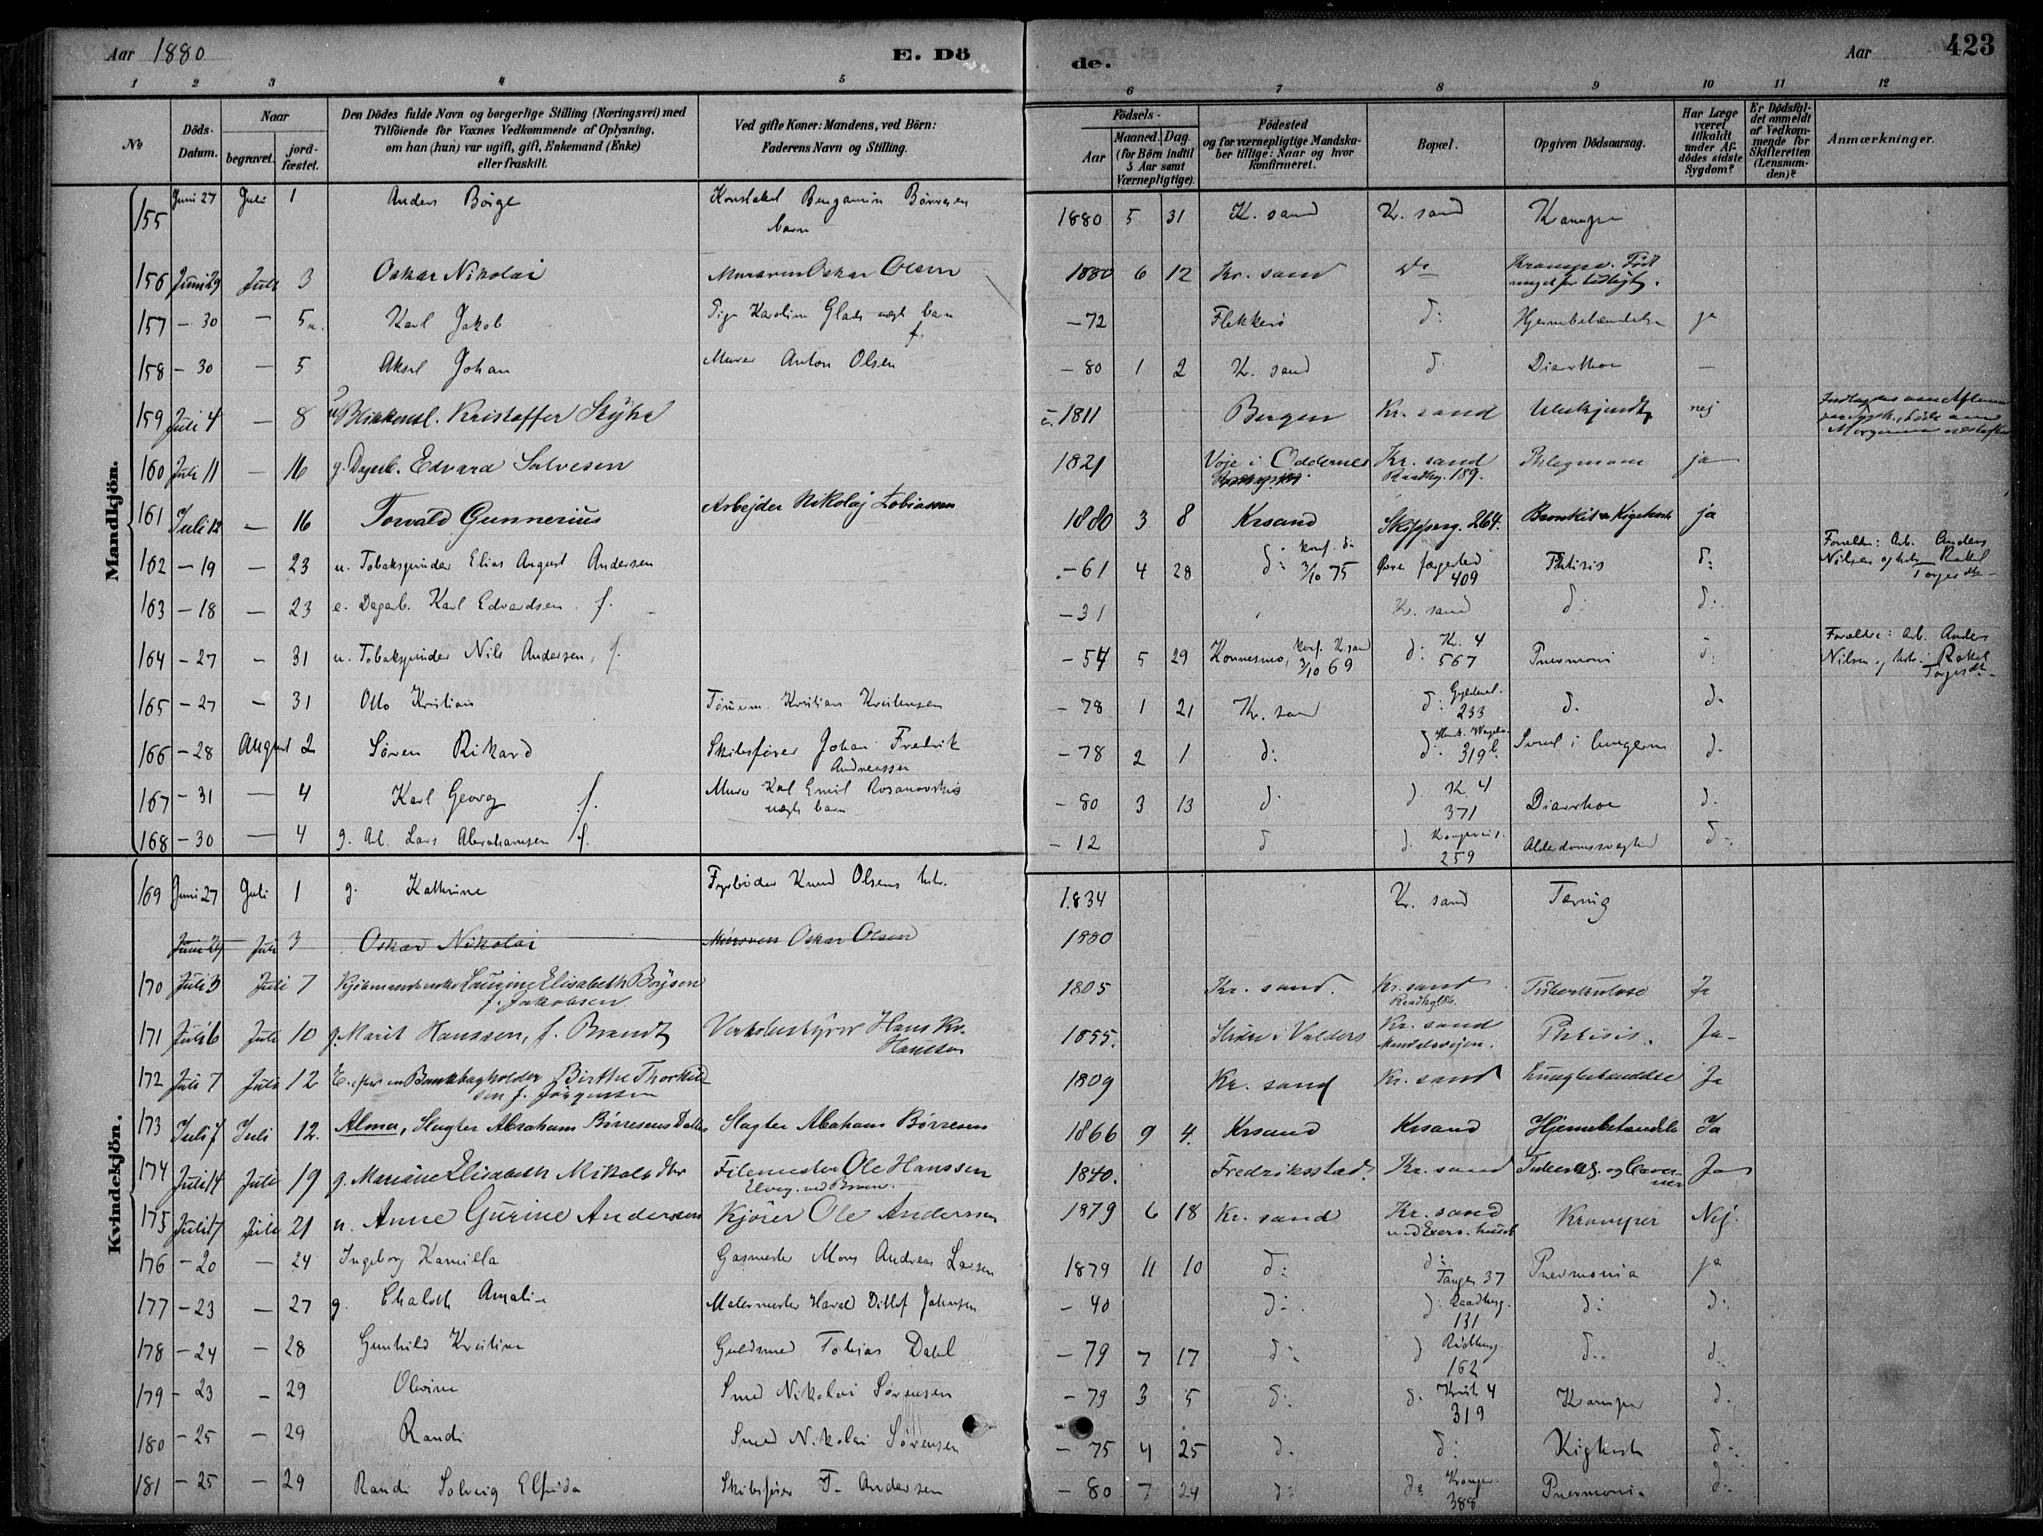 Aar 1880 E. Dö de. Aar 423
1 2 3 4 5 6 7 8 9 10 11 12
No
Döds-Datum.
Naar
begravet.
jordfæstet.
Den Dödes fulde Navn og borgerlige Stilling (Næringsvei) med
Tilföiende for Voxnes Vedkommende af Oplysning,
om han (hun) var ugift, gift, Enkemand (Enke)
eller fraskilt.
Ved gifte Koner: Mandens, ved Börn:
Faderens Navn og Stilling.
Födsels-
Aar
Maaned. Dag.
(for Börn indtil
5 Aar samt
Værnepligtige).
Födested
og for værnepligtige Mandskaber
tillige: Naar og hvor
konfirmeret.
Bopæl.
Opgiven Dödsaarsag.
Har Læge
været
tilkaldt
under Afdödes
sidste
Sygdom?
Er Dödsfaldet
anmeldt
af Vedkommende
for
Skifteretten
(Lensmanden)?
Anmærkninger.
Mandkjön.
155 Juni 27 Juli 1 Anders Börge Konstabel Benjamin Børresen barn 1880 5 31 K. sand K. sand Krampe
156 Juni 29 Juli 3 Oskar Nikolai Murersven Oskar Olsen 1880 6 12 Kr. sand Do Krampe. Født meget for tidligt.
157 – 30 — 5 Karl Jakob Pige Karoline uægt barn f. – 72 Flekkerö d: Hjernebetændelse ja
158 – 30 — 5 Aksel Johan Murer Anton Olsen – 80 1 2 K. sand d: Diarrhoe —
159 Juli 4 — 8 Kristoffer 1811 Bergen Kr. sand Ubekjendt nej
160 Juli 11 — 16 g. Dagarb. Edvard Salvesen 1821 Voje i Oddernes Kr. sand Raadhg. 189. Phlegmone ja
161 Juli 12 — 16 Torvald Gunnerius Arbejder Nikolaj Tobiassen 1880 3 8 Krsand Skipperg. 264. Bronkit Kigehoste ja
162 – 19 — 23 u. Tobakspinder Elias August Andersen – 61 4 28 d: konf. d: 3/10 75 409 Phtisis d: Forældre: Arb. Anders Nilsen og hstr. Rakel Torgersdtr.
163 – 18 — 23 e. Dagarb. Karl Edvardsen f. – 31 Kr. sand d: d:
164 – 27 – 31 u. Tobakspinder Nils Andersen, f. – 54 5 29 Konnesmo, konf. K.sand 3/10 69 d: K. 4 567 Pnevmoni d: Forældre: Arb. Anders Nilsen og hstr. Rakel Torgersdtr.
165 – 27 – 31 Otto Kristian Tømm. Kristian Kristensen – 78 1 21 Kr. sand d: Gyldenl. 233 d. d.
166 – 28 August 2 Søren Rikard Skibsfører Johan Fredrik Andreassen – 78 2 1 d: d: 319 b i lungerne d.
167 – 31 — 4 Karl Georg f. Murer Karl Emil Rosanovskis uægte barn – 80 3 13 d. d. K. 4 371 Diarrhoe d.
168 – 30 — 4 g. Arb. Lars Abrahamsen f. – 12 d d. 259 Alderdomssvaghed d:
Kvindekjön.
169 Juni 27 Juli 1 g. Kathrine Fyrbøder Knud Olsens hstr. 1834 Kr. sand Tæring
Juni 29 Juli 3 Oskar Nikolai Mursven Oskar Olsen 1880
170 Juli 3 Juli 7 Kjøbmandsenke Laurine Elisabeth Boysen f. Jakobsen 1805 Kr. sand. Kr. sand Raadhg 186. Tuberkulose Ja
171 Juli 6 Juli 10 g. Marit Hanssen, f. Brandt Hans Kr. Hanssen 1855. Slidre i Valders Kr. sand Mandalsvejen. Phtisis. Ja-
172 Juli 7 Juli 12 E. efter en Bankbogholder Birthe Thorkildsen f. Jörgensen 1809 Kr. sand Kr. sand Lungebetændelse Ja
173 Juli 7 Juli 12. Alma, Slagter Abraham Børresens Datter Slagter Abrahams Børresen 1866 9 4. Krsand Krsand Hjernebetændelse Ja
174 Juli 14 Juli 19 g. Mariane Elisabeth Mikalsdtr Filemester Ole Hanssen Elveg. ved Broen. 1840. Fredriksstad. Kr. sand Tuberkl. og Caverner Ja
175 Juli 17 Juli 21 u. Anne Gurine Andersen Kjörer Ole Andersen 1879 6 18 Kr. sand Kr. sand ved Exers. huset Kramper Nej.
176 – 20 — 24 Ingeborg Kamilla Gasmester Mons Andreas Larsen 1879 11 10 d: d: Tangen 37 Pnevmonia ja
177 – 23 — 27 g. Amalie Malermester Harald Ditlof Jahnsen – 40 d: d: Raadhusg. 131 d: d:
178 – 24 — 28 Gunhild Kristine Guldsmed Tobias Dahl – 79 7 17 d: d 162 d: d.
179 – 23 – 29 Olevine Smed Nikolai Sørensen – 79 3 5 d: d. Krist 4 319 Kramper d.
180 – 25 – 29 Randi Smed Nikolai Sørensen – 75 4 25 d. d: Kighoste d:
181 – 25 – 29 Randi Solveig Elfrida Skibsfører T. Andersen – 80 7 24 d: d: 388 Pnevmonia d: